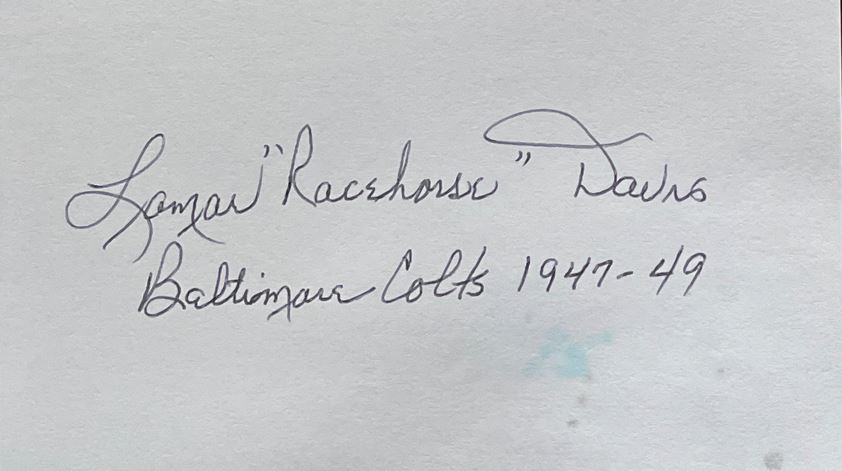 Lamar "Racehorse" Davis
Baltimore Colts 1947-49